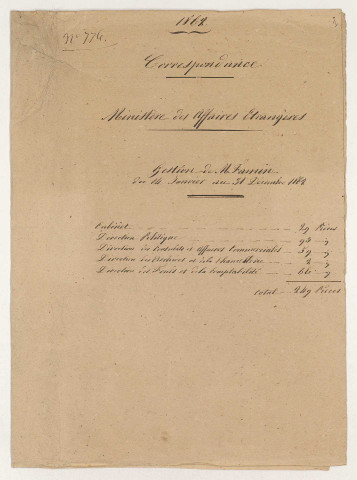 1862
N° 774.
Correspondance
Ministère des Affaires Etrangères
Gestion de M. Famin
du 14 Janvier au 31 Décembre 1862
Cabinet 29 Pièces
Direction Politique 93 "
Direction des Consulats et Affaires Commerciales 59 "
Direction des Archives et de la Chancellerie 2 "
Direction des Fonds et de la Comptabilité 66 "
Total 249 Pièces